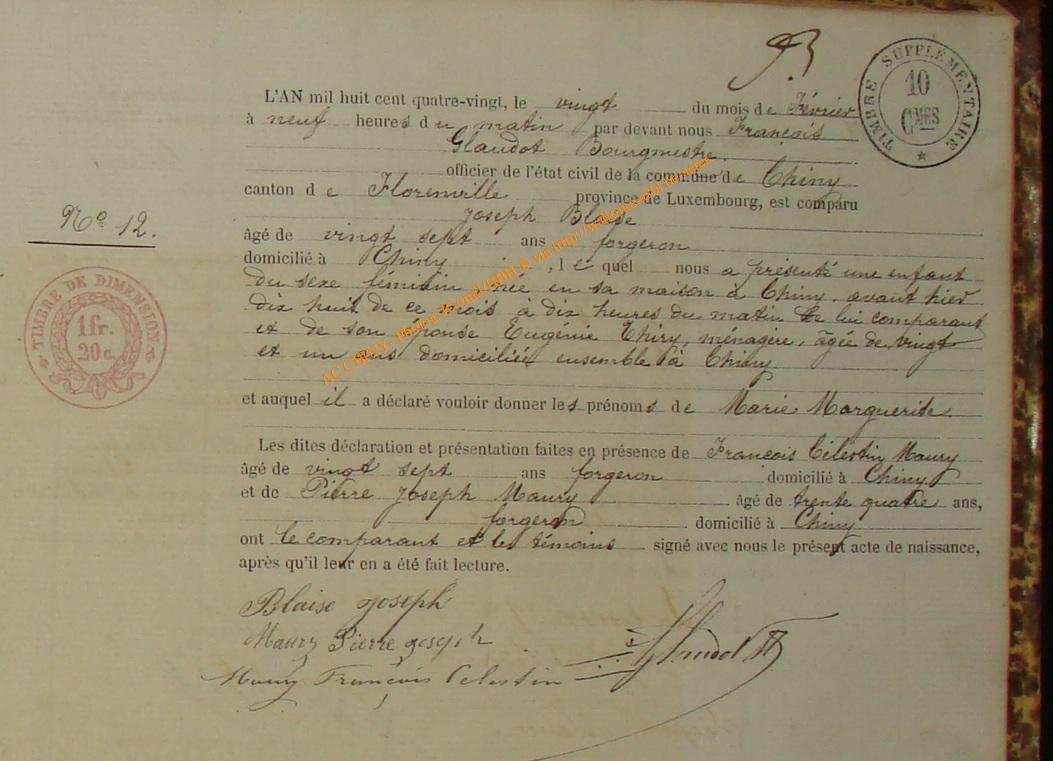 TIMBRE SUPPLÉMENTAIRE
10
CMES
L'AN mil huit cent quatre-vingt, le vingt du mois de Février
à neuf heures du matin par devant nous François
Glaudot Bourgmestre,
officier de l'état civil de la commune de Chiny
canton de Florenville province de Luxembourg, est comparu
Joseph Blaise
Nº 12.
âgé de vingt sept ans forgeron
domicilié à Chiny, le quel nous a présenté une enfant
du sexe féminin née en sa maison à Chiny, avant hier
dix huit de ce mois à dix heures du matin de lui comparant
et de son épouse Eugénie Thiry, ménagère, âgée de vingt
et un ans domiciliée ensemble à Chiny
TIMBRE DE DIMENSION
1 fr.
20 c.
et auquel il a déclaré vouloir donner les prénoms de Marie Marguerite.
Les dites déclaration et présentation faites en présence de François Célestin Maury
âgé de vingt sept ans forgeron domicilié à Chiny
et de Pierre Joseph Maury âgé de trente quatre ans,
forgeron domicilié à Chiny
ont le comparant et les témoins signé avec nous le présent acte de naissance,
après qu'il leur en a été fait lecture.
Blaise Joseph
Maury Pierre Joseph
Glaudot
Maury François Celestin